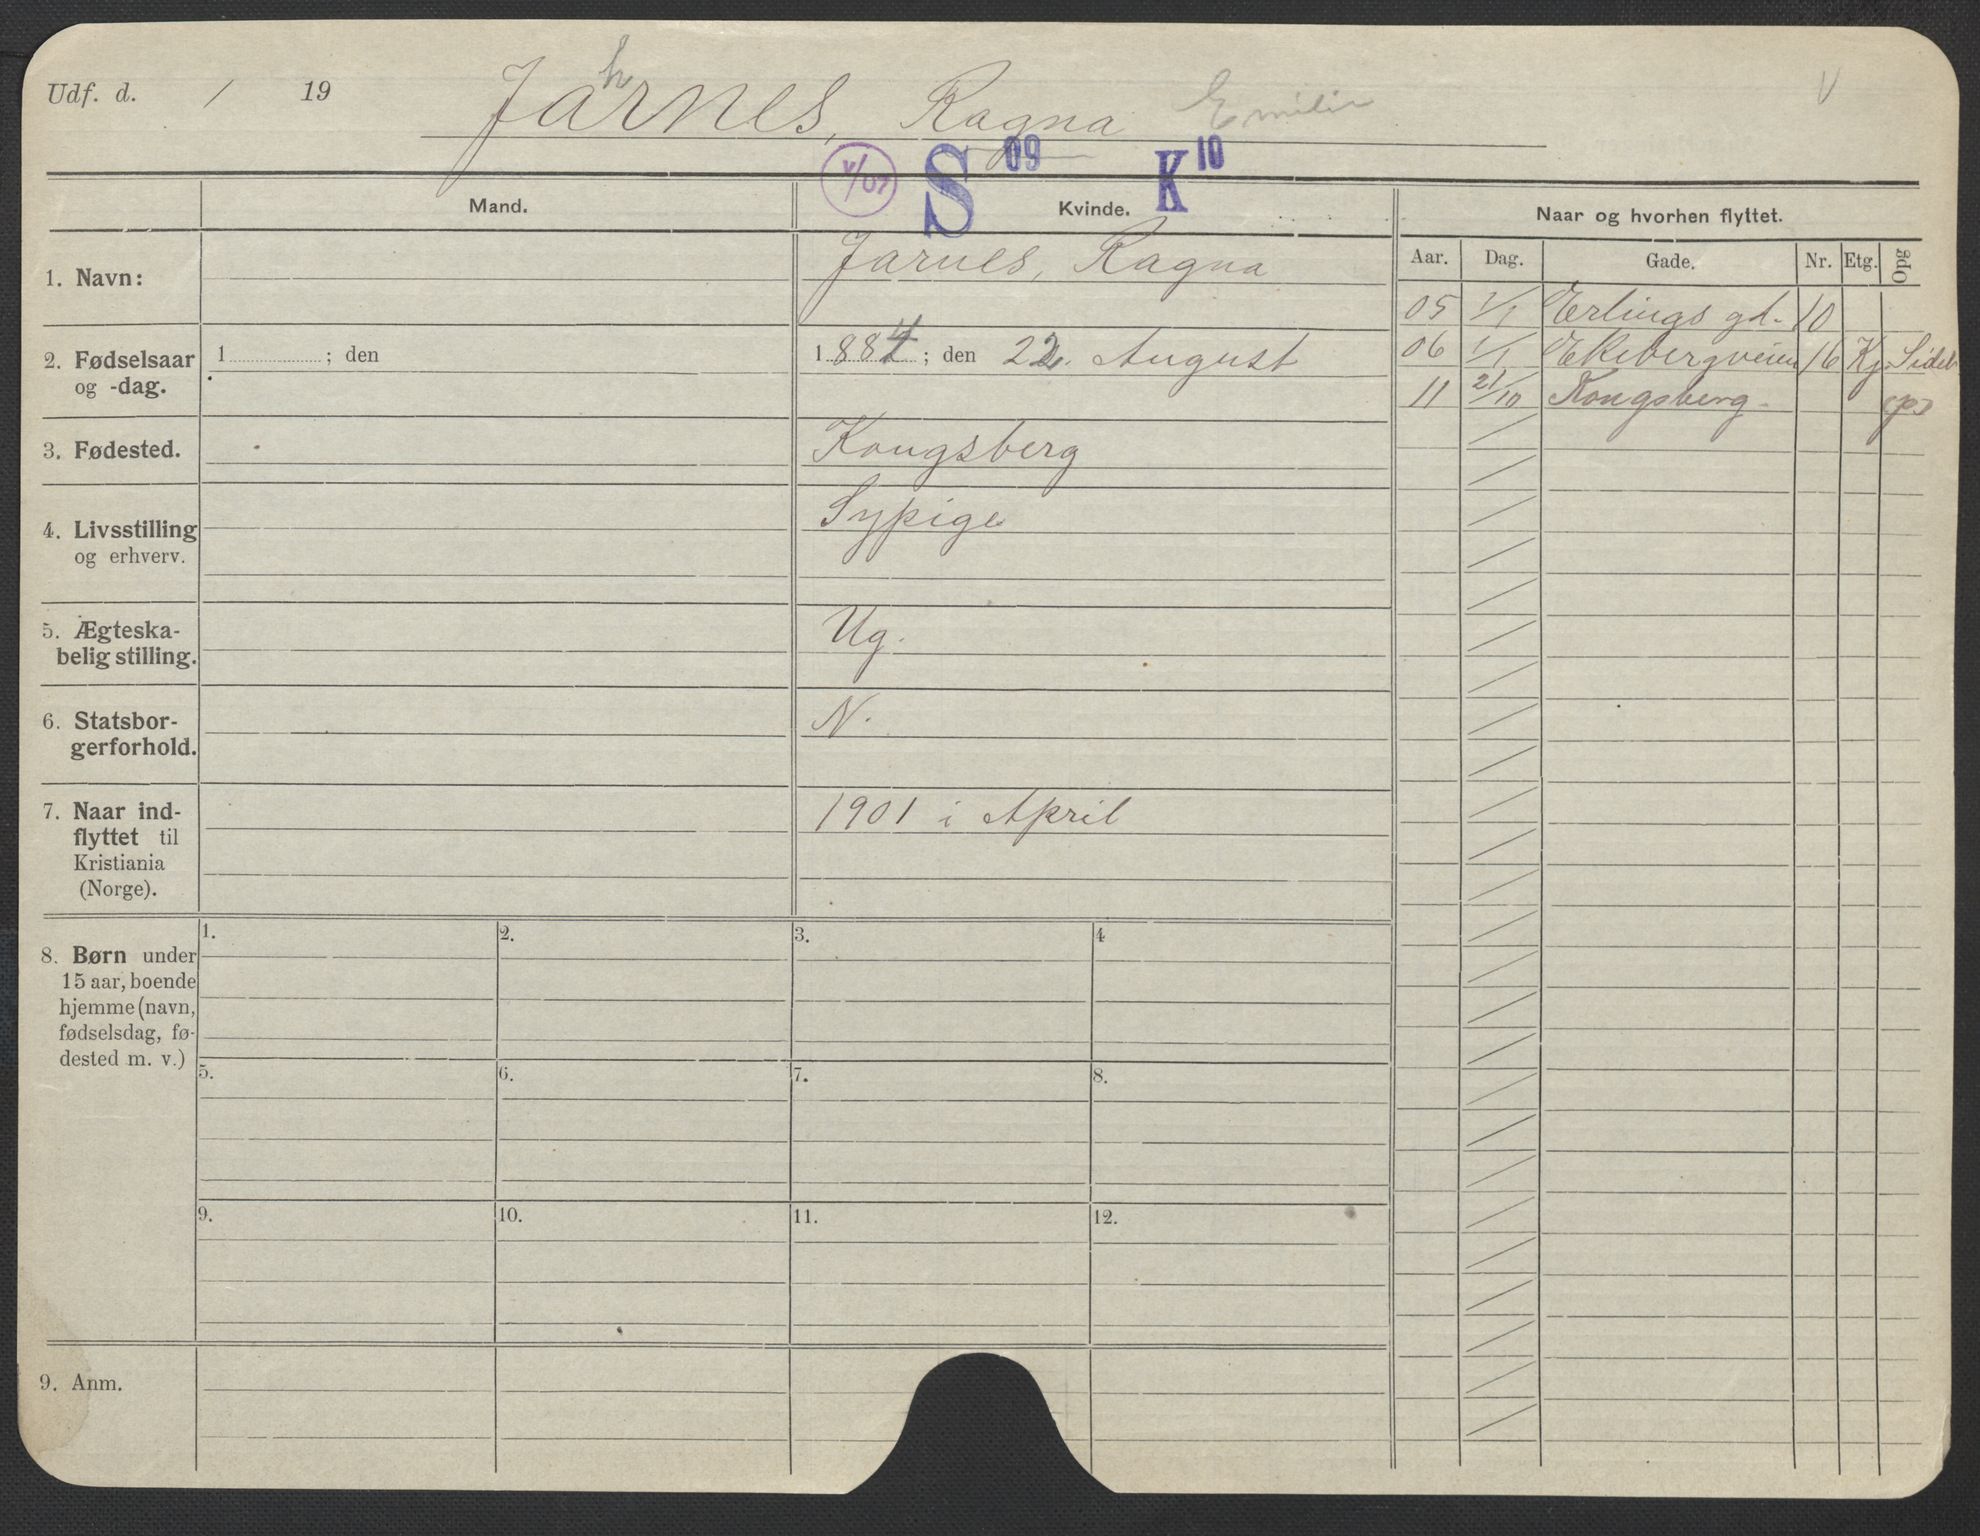 Udf. d. / 19 Jahrnes, Ragna Emilie V
V/07 S 09 K 10
Mand. Kvinde. Naar og hvorhen flyttet.
Aar. Dag. Gade. Nr. Etg. Opg
1. Navn: Jarnes, Ragna
05 1/1 Erlings gd. 10
2. Fødselsaar 1 ; den 1884 ; den 22. August
og -dag.
06 1/1 Ekebergveien 16 Kj. Sideb
11 21/10 Kongsberg
3. Fødested. Kongsberg
4. Livsstilling Sypige
og erhverv.
5. Ægteska-
belig stilling. Ug.
6. Statsbor- N.
gerforhold.
7. Naar ind- 1901 i April
flyttet til
Kristiania
(Norge).
8. Børn under
15 aar, boende
hjemme (navn,
fødselsdag, fø-
dested m. v.)
1. 2. 3. 4
5. 6. 7. 8.
9. 10. 11. 12.
9. Anm.